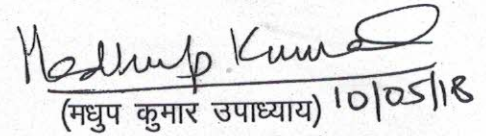 Madhup Kumar
(मधुप कुमार उपाध्याय) 10/05/18